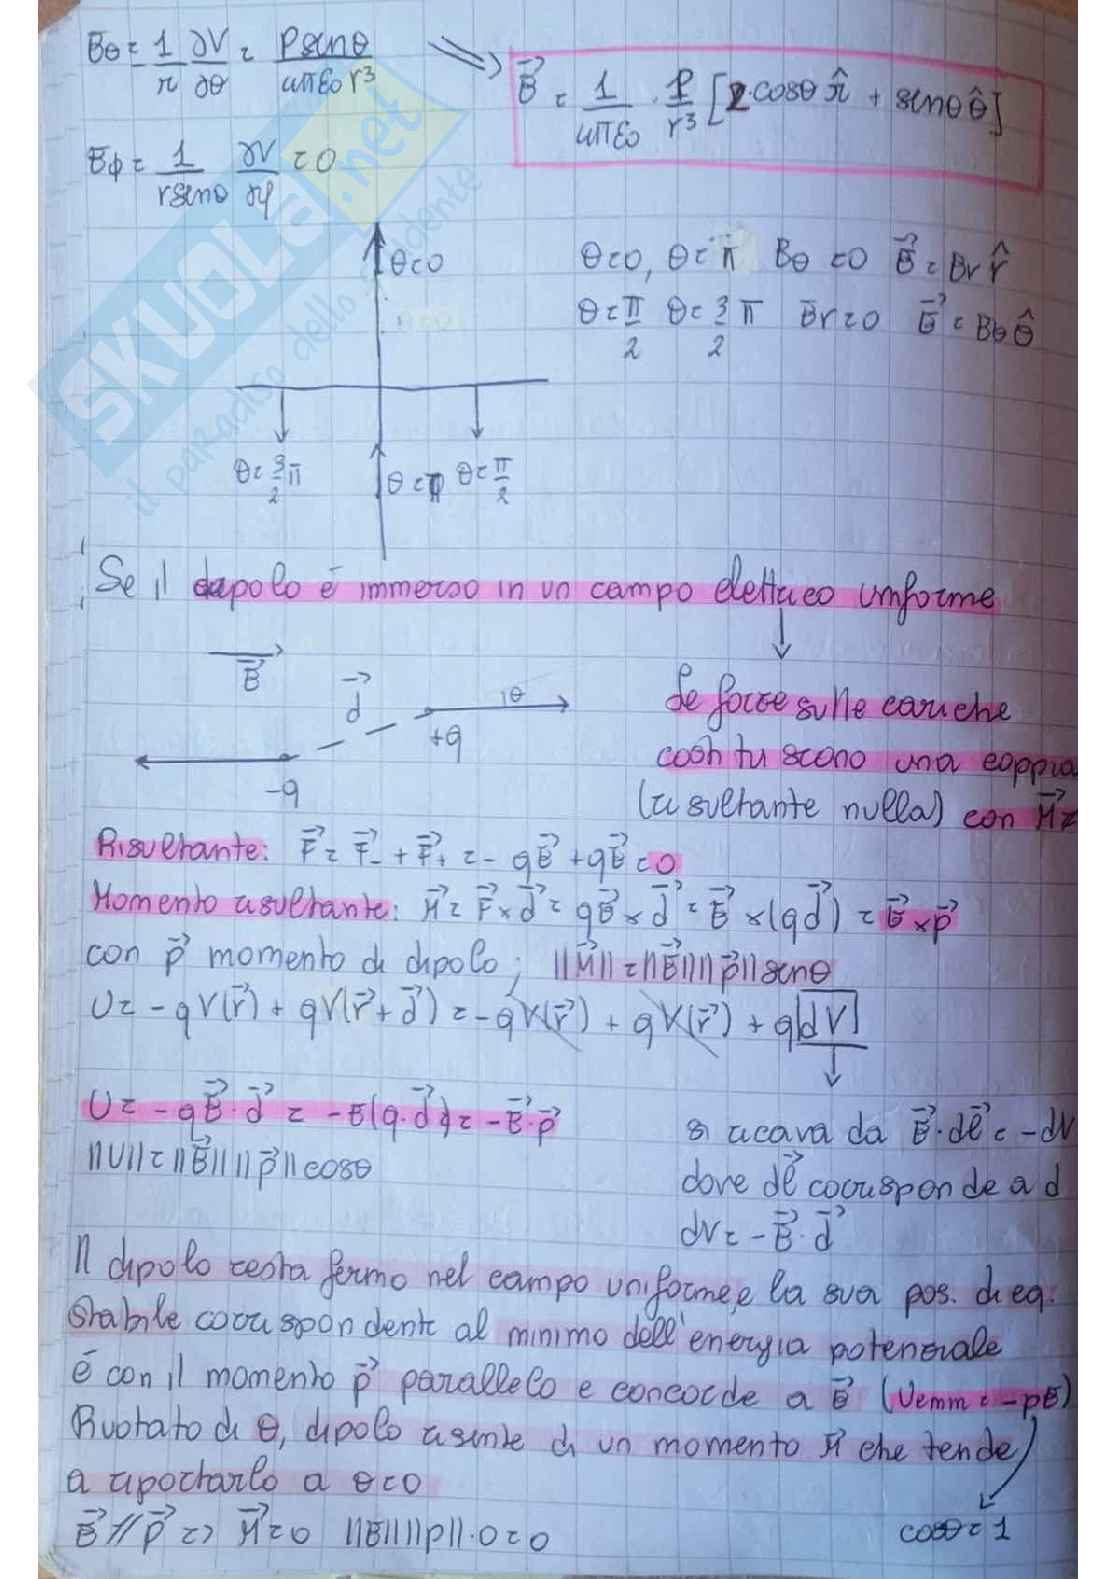 Eθ = 1/r ∂V/∂θ = p senθ / 4πε₀ r³ ⟹ E⃗ = 1/4πε₀ · p/r³ [2 cosθ r̂ + senθ θ̂]
Eφ = 1/r senθ ∂V/∂φ = 0
θ=0
θ=0, θ=π Eθ=0 E⃗ = Er r̂
θ=π/2 θ=3/2 π Er=0 E⃗ = Eθ θ̂
θ=3/2 π θ=π θ=π/2
Se il dipolo è immerso in un campo elettrico uniforme
E⃗
d⃗ θ
+q
-q
le forze sulle cariche
costituiscono una coppia
(risultante nulla) con M⃗≠
Risultante: F⃗ = F⃗₋ + F⃗₊ = -qE⃗ + qE⃗ = 0
Momento risultante: M⃗ = F⃗ × d⃗ = qE⃗ × d⃗ = E⃗ × (qd⃗) = E⃗ × p⃗
con p⃗ momento di dipolo; ||M⃗|| = ||E⃗|| ||p⃗|| senθ
U = -qV(r⃗) + qV(r⃗ + d⃗) = -qV(r⃗) + qV(r⃗) + q dV
U = -qE⃗·d⃗ = -E(q·d⃗) = -E⃗·p⃗
||U|| = ||E⃗|| ||p⃗|| cosθ
si ricava da E⃗·dℓ⃗ = -dV
dove dℓ⃗ corrisponde a d
dV = -E⃗·d⃗
Il dipolo resta fermo nel campo uniforme, e la sua pos. di eq.
stabile corrispondente al minimo dell'energia potenziale
è con il momento p⃗ parallelo e concorde a E⃗ (Uemin = -pE)
Ruotato di θ, dipolo risente di un momento M⃗ che tende
a riportarlo a θ=0
E⃗ // p⃗ => M⃗=0 ||E|| ||p||·0=0
cosθ=1
SKUOLA.net
il paradiso dello studente